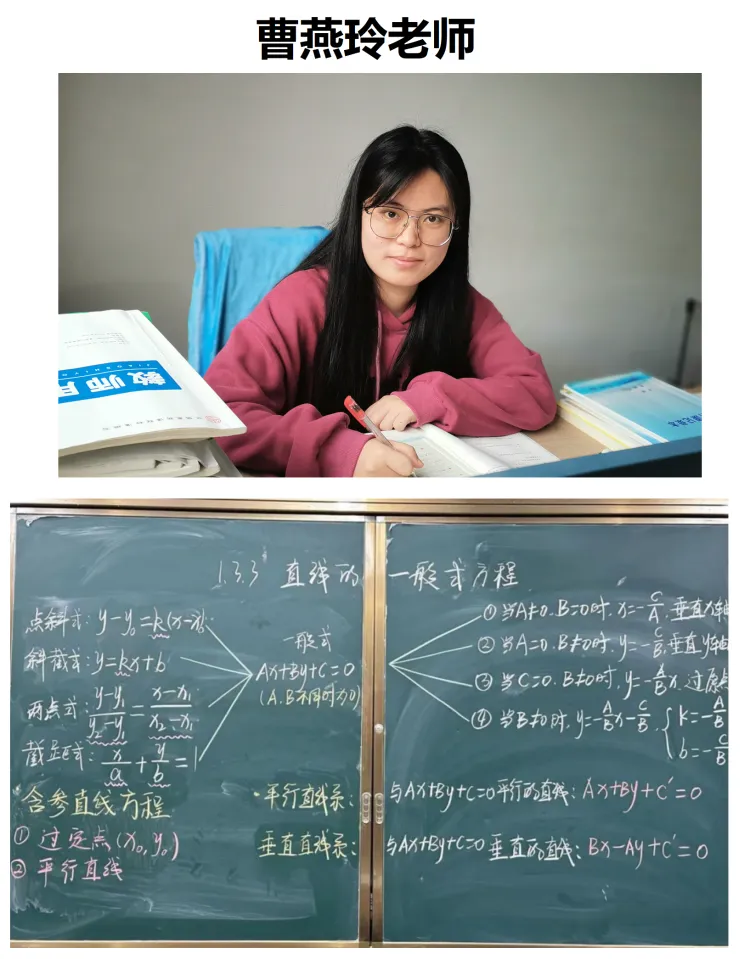 曹燕玲老师
教师用
1.3.3 直线的一般式方程
点斜式: y-y₀=k(x-x₀)
斜截式: y=kx+b
两点式: (y-y₁)/(y₂-y₁)=(x-x₁)/(x₂-x₁)
截距式: x/a+y/b=1
一般式
Ax+By+C=0
(A.B不同时为0)
① 当A≠0.B=0时, x=-C/A, 垂直x轴
② 当A=0.B≠0时, y=-C/B, 垂直y轴
③ 当C=0.B≠0时, y=-A/B x, 过原点
④ 当B≠0时, y=-A/B x-C/B, { k=-A/B
b=-C/B
含参直线方程
① 过定点(x₀,y₀)
② 平行直线
·平行直线系: 与Ax+By+C=0平行的直线: Ax+By+C'=0
垂直直线系: 与Ax+By+C=0垂直的直线: Bx-Ay+C'=0